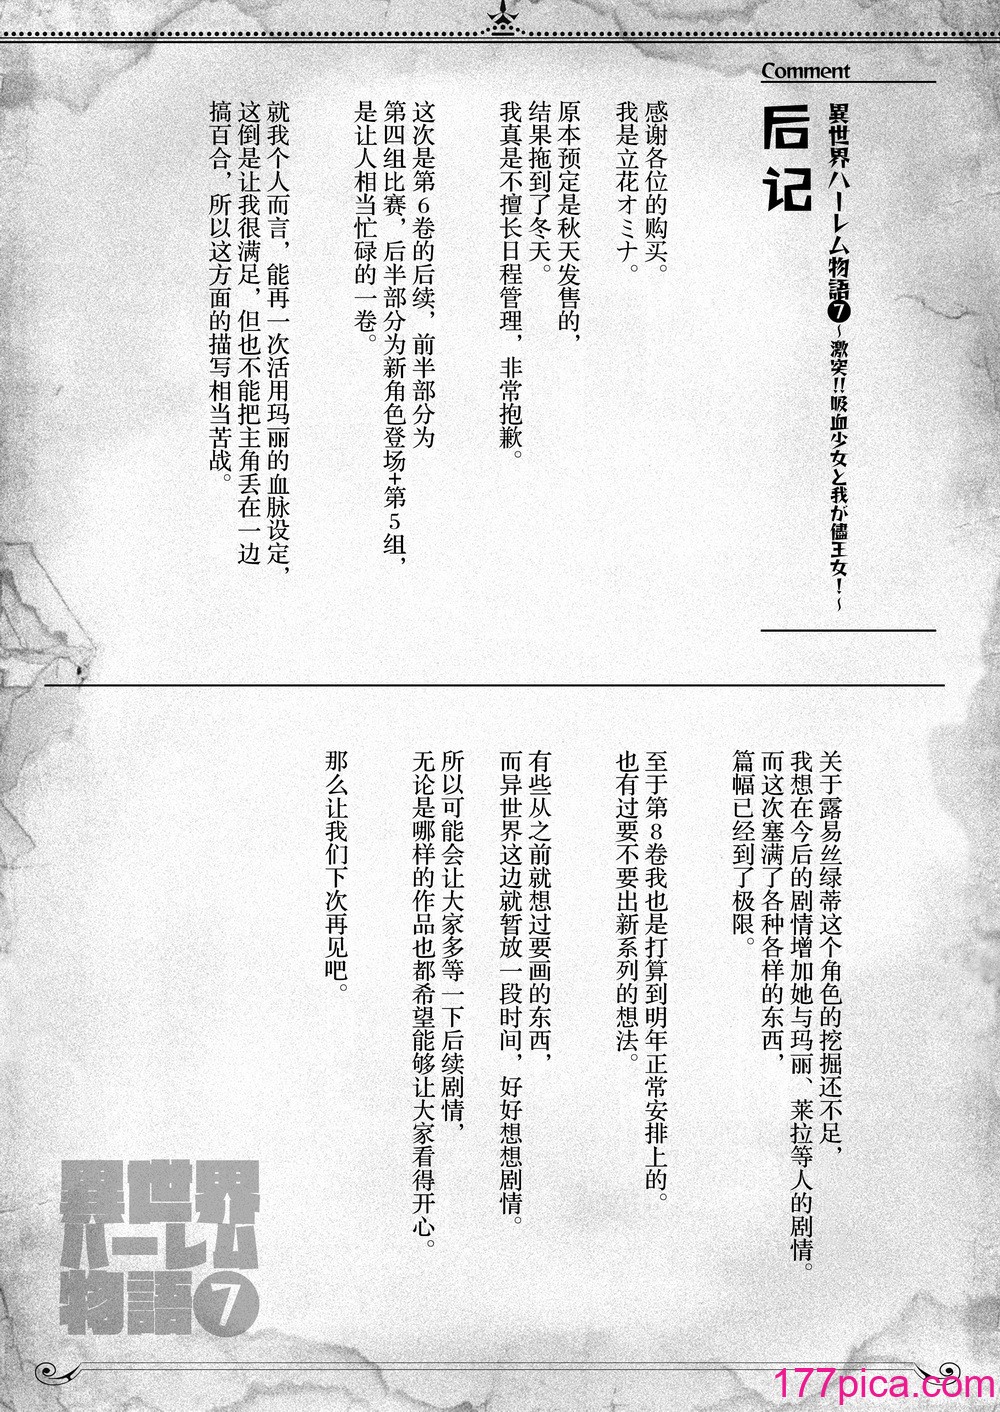 Comment
異世界ハーレム物語7～激突!!吸血少女と我が儘王女!～
后记
感谢各位的购买。
我是立花オミナ。
原本预定是秋天发售的，
结果拖到了冬天。
我真是不擅长日程管理，非常抱歉。
这次是第6卷的后续，前半部分为
第四组比赛，后半部分为新角色登场+第5组，
是让人相当忙碌的一卷。
就我个人而言，能再一次活用玛丽的血脉设定，
这倒是让我很满足，但也不能把主角丢在一边
搞百合，所以这方面的描写相当苦战。
关于露易丝绿蒂这个角色的挖掘还不足，
我想在今后的剧情增加她与玛丽、莱拉等人的剧情。
而这次塞满了各种各样的东西，
篇幅已经到了极限。
至于第8卷我也是打算到明年正常安排上的。
也有过要不要出新系列的想法。
有些从之前就想过要画的东西，
而异世界这边就暂放一段时间，好好想想剧情。
所以可能会让大家多等一下后续剧情，
无论是哪样的作品也都希望能够让大家看得开心。
那么让我们下次再见吧。
異世界
ハーレム
物語7
177pica.com